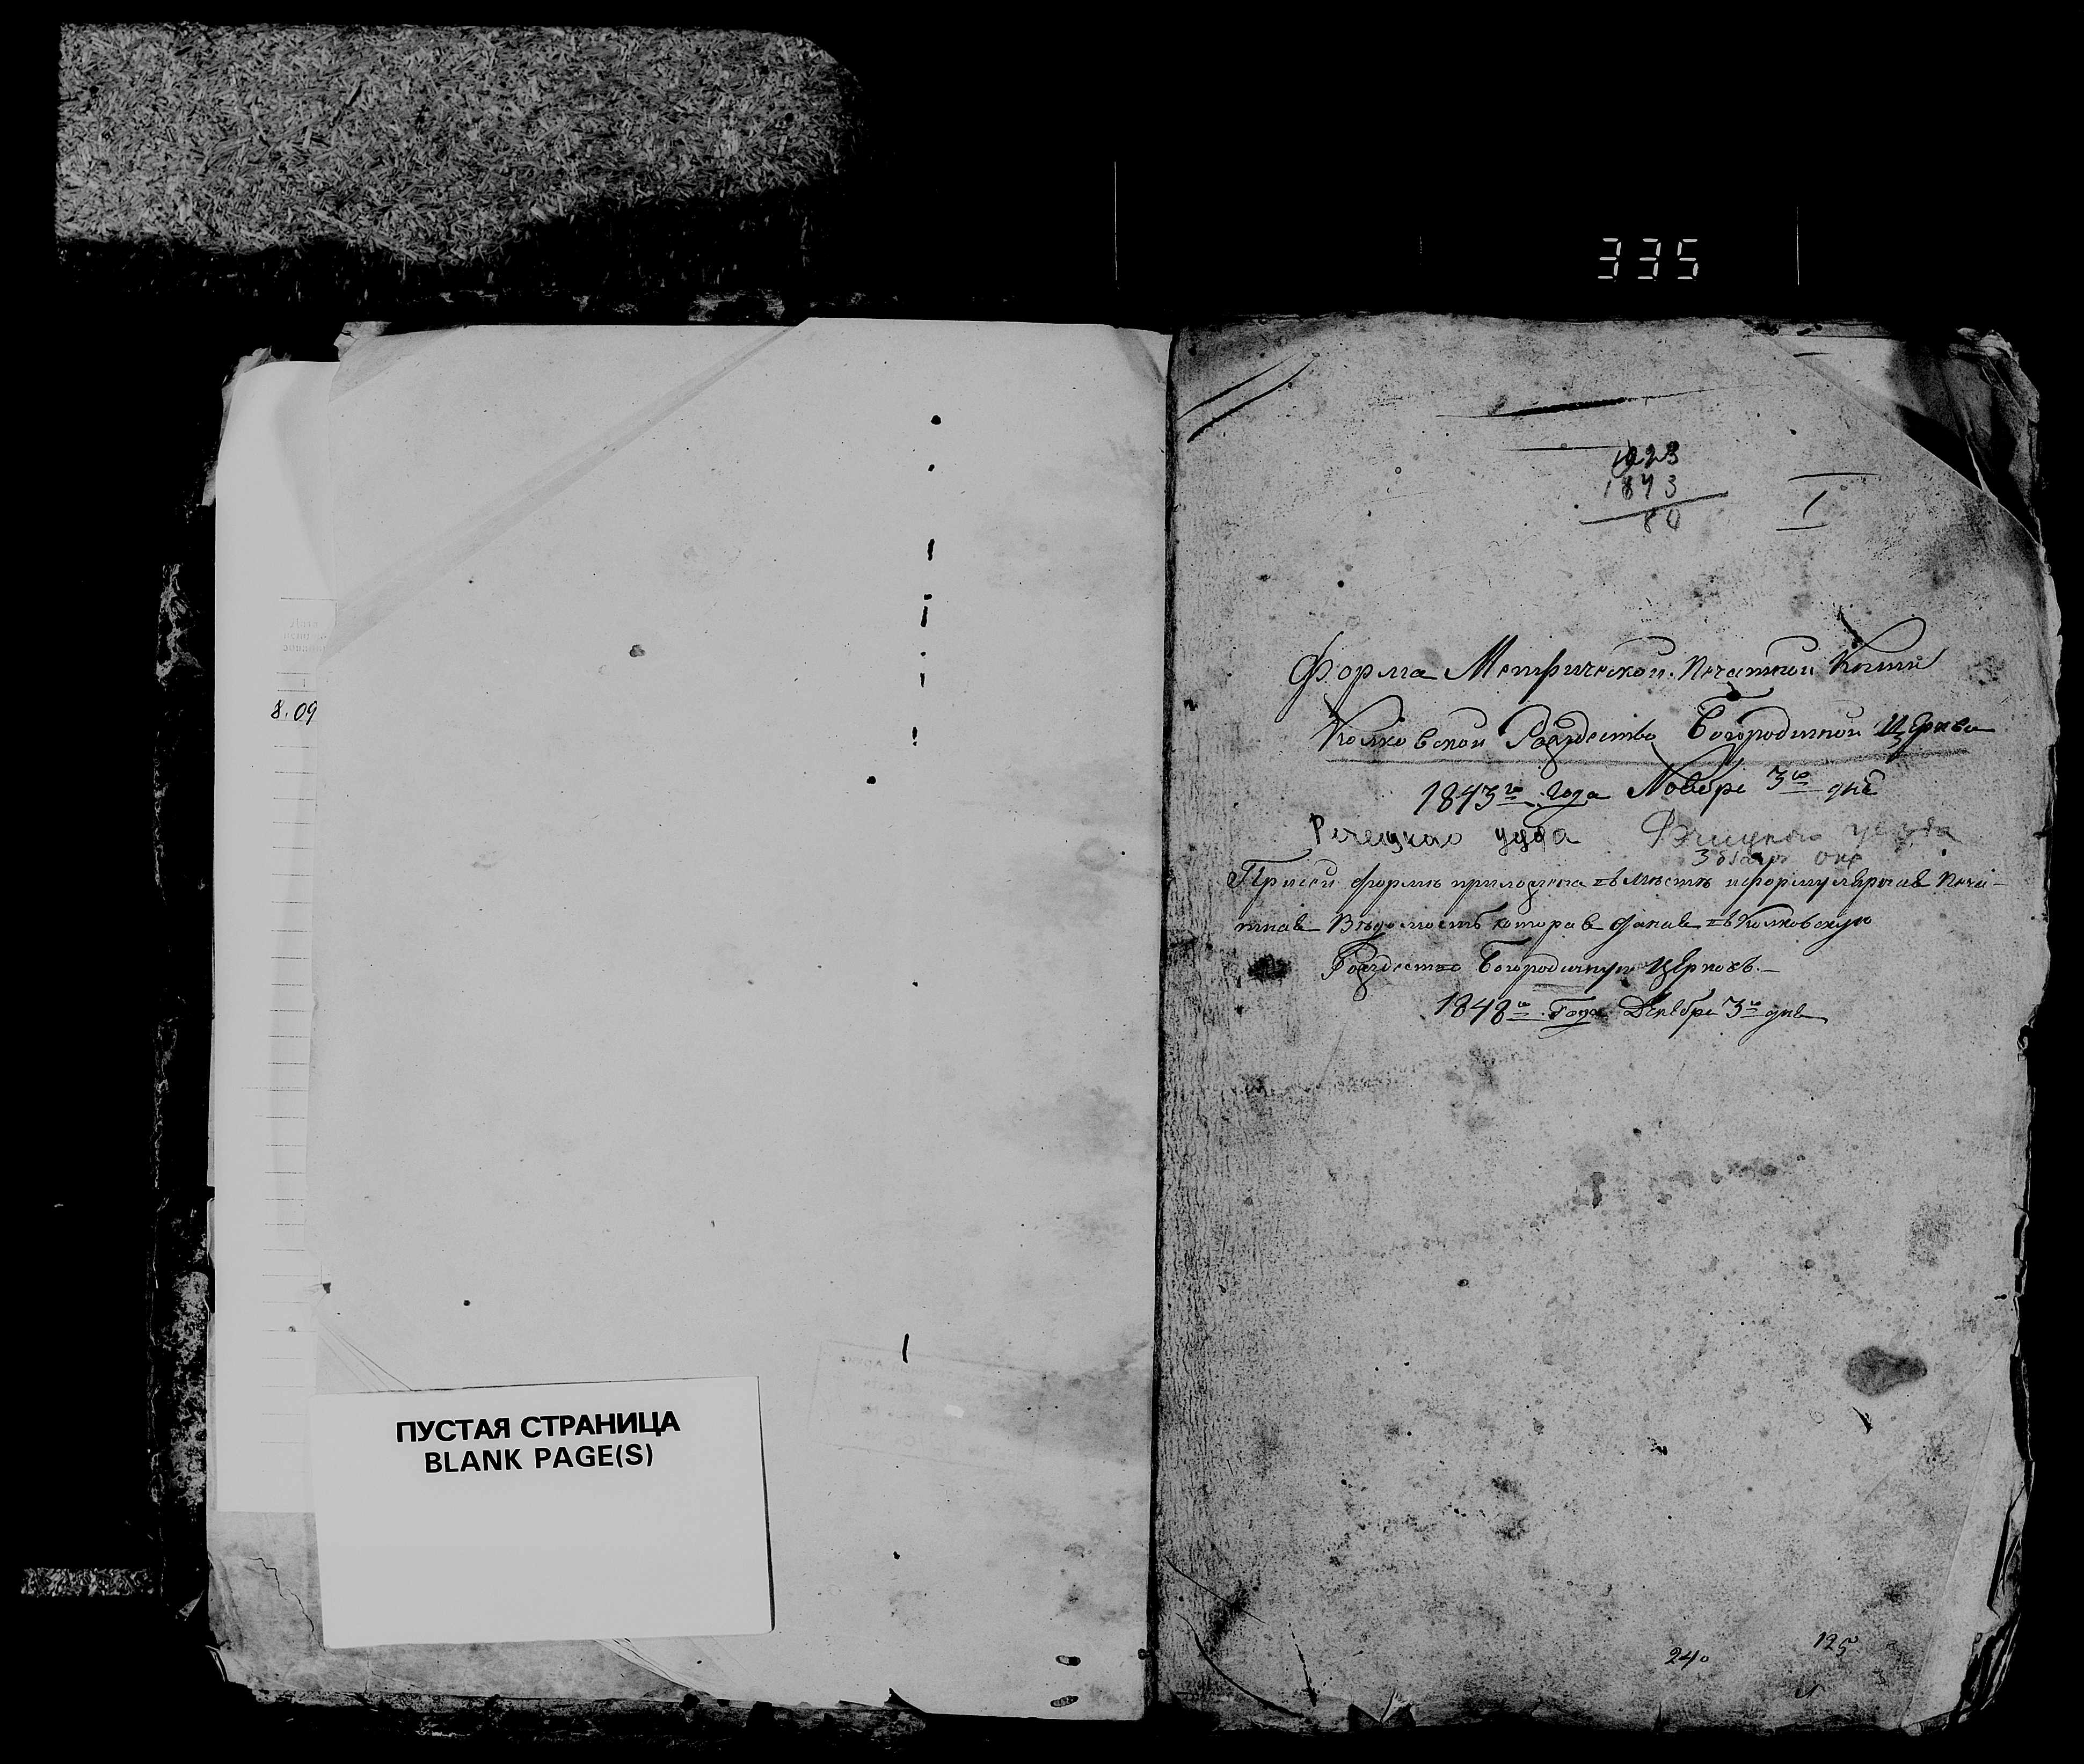 335
8.09
1923
1843
80
I
Форма Метрической Печатной Книги
Колковской Рождество Богородичной Церкви
1843го Года Ноября 3го дня
Речецкаго уезда Речицкаго уезда
При сей форме приложена въ месте и формулярная Печа-
тная Ведомость которая данная въ Колковскую
Рождество Богородичную Церковь.
1848го Года Декабря 3го дня
ПУСТАЯ СТРАНИЦА
BLANK PAGE(S)
240
125